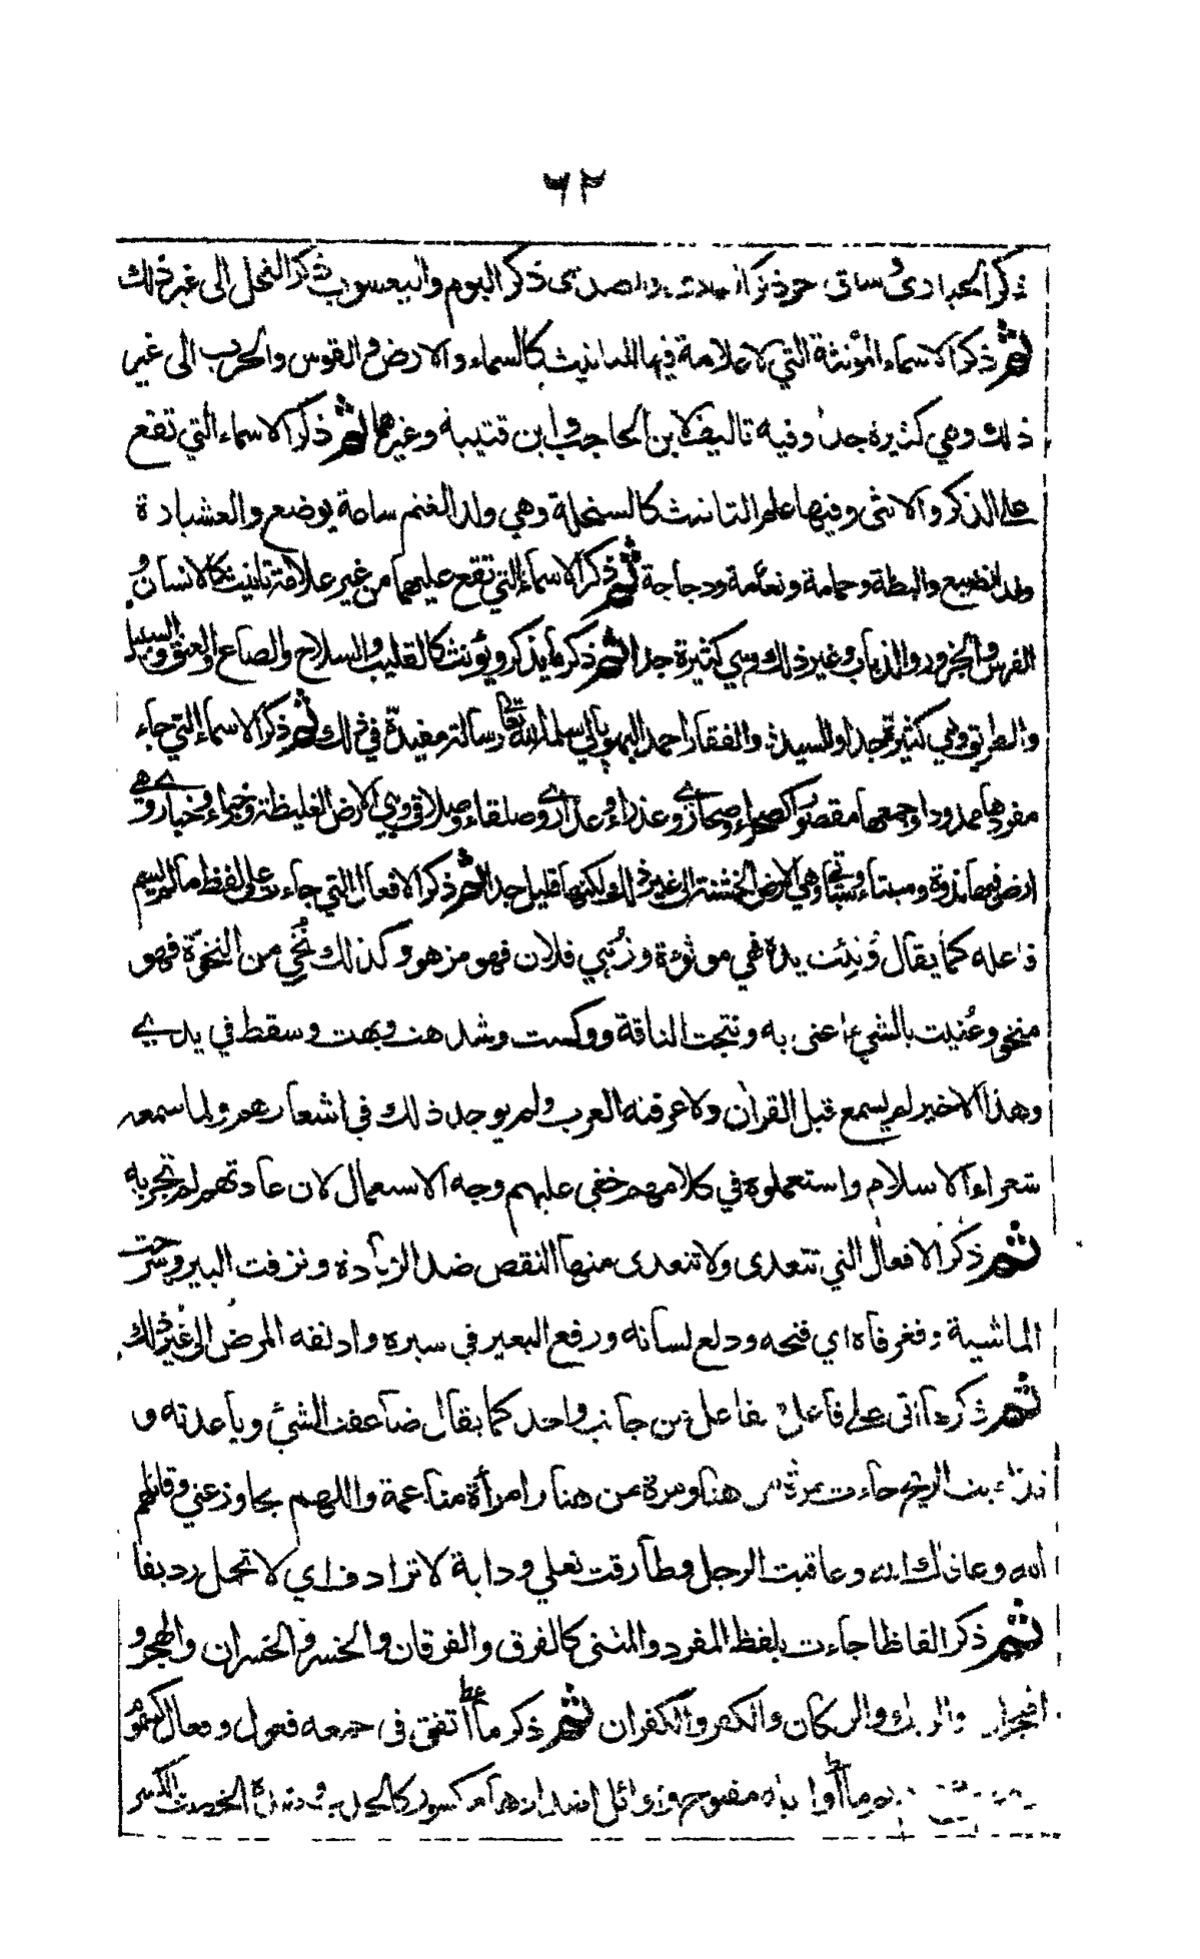 ٦٢
ذكر الحبارى وساق حر ذكر البوم واليعسوب ذكر النحل الى غير ذلك
ثم ذكر الاسماء المؤنثة التي لا علامة فيها للتانيث كالسماء والارض والقوس والحرب الى غير
ذلك وهي كثيرة جدا وفيه تاليف لابن الحاجب وابن قتيبة وغيرهما ثم ذكر الاسماء التي تقع
على الذكر والانثى وفيها علم التانيث كالسخلة وهي ولد الغنم ساعة يوضع والعشبارة
ولد الضبع والبطة وحمامة ونعامة ودجاجة ثم ذكر الاسماء التي تقع عليهما من غير علامة تانيث كالانسان و
الفرس والجزور والذباب وغير ذلك وهي كثيرة جدا ثم ذكر ما يذكر ويؤنث كالقليب والسلاح والصاع والعنق والسبيل
والطريق وهي كثيرة جدا وللسيد ذو الفقار احمد البهوپالي سلمه الله تعالى رسالة مفيدة في ذلك ثم ذكر الاسماء التي جاء
مفردها ممدودا وجمعها مقصورا كصحراء وصحارے وعذراء وعذارے وصلفاء وصلافى وهي الارض الغليظة وخبراء وخبارے وهي
ارض فيها ندوة وسبتاء وسباتى وهي الارض الخشنة الى غير ذلك ولكنها قليل جدا ثم ذكر الافعال التي جاءت على لفظ ما لم يسم
فاعله كما يقال وُثِئت يده فهي موثوءة وزُهي فلان فهو مزهو وكذلك نُخي من النخوة فهو
منخو وعُنيت بالشيء اعنى به ونتجت الناقة ووكست وشدهت وبهت وسقط في يدے
وهذا الاخير لم يسمع قبل القرآن ولا عرفته العرب ولم يوجد ذلك في اشعارهم ولما سمعه
شعراء الاسلام واستعملوه في كلامهم خفي عليهم وجه الاستعمال لان عادتهم لم تجر به
ثم ذكر الافعال التي تتعدى ولا تتعدى منها النقص ضد الزيادة ونزفت البير وسرحت
الماشية وفغر فاه اي فتحه ودلع لسانه ورفع البعير في سيره وادنفه المرض الى غير ذلك
ثم ذكر ما اتى على فاعل يفاعل من جانب واحد كما يقال ضاعفت الشئ وباعدته و
تذاءبت الريح جاءت مرة من هنا ومرة من هنا وامرأة مناعمة واللهم تجاوز عني وقاتلهم
الله وعافاك الله وعاقبت الرجل وطارقت نعلي ودابة لا ترادف اي لا تحمل رديفا
ثم ذكر الفاظا جاءت بلفظ المفرد والمثنى كالفرق والفرقان والخسر والخسران والهجر و
الهجران والكفر والكفران ثم ذكر ما اتفق في جمعه على فعول وفعال كسمو
ما اوله مفتوح واوائل اضدادها مكسور كالجدب وضده الخصب